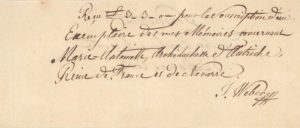 Reçu £ 3-3-0 pour la souscription d'un
Exemplaire des mes Mémoires concernant
Marie Antoinette, Archiduchesse d'Autriche
Reine de France et de Navarre
J. Weber